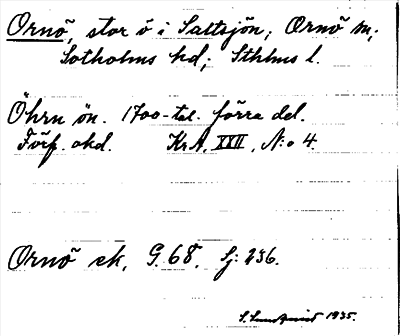 Ornö, stor ö i Saltsjön; Ornö sn;
Sotholms hd; Sthlms l.
Öhrn ön. 1700-tal. förra del.
Förf. okd. KrA, XXII, N:o 4.
Ornö sk. G. 68. Sj: 236.
1935.